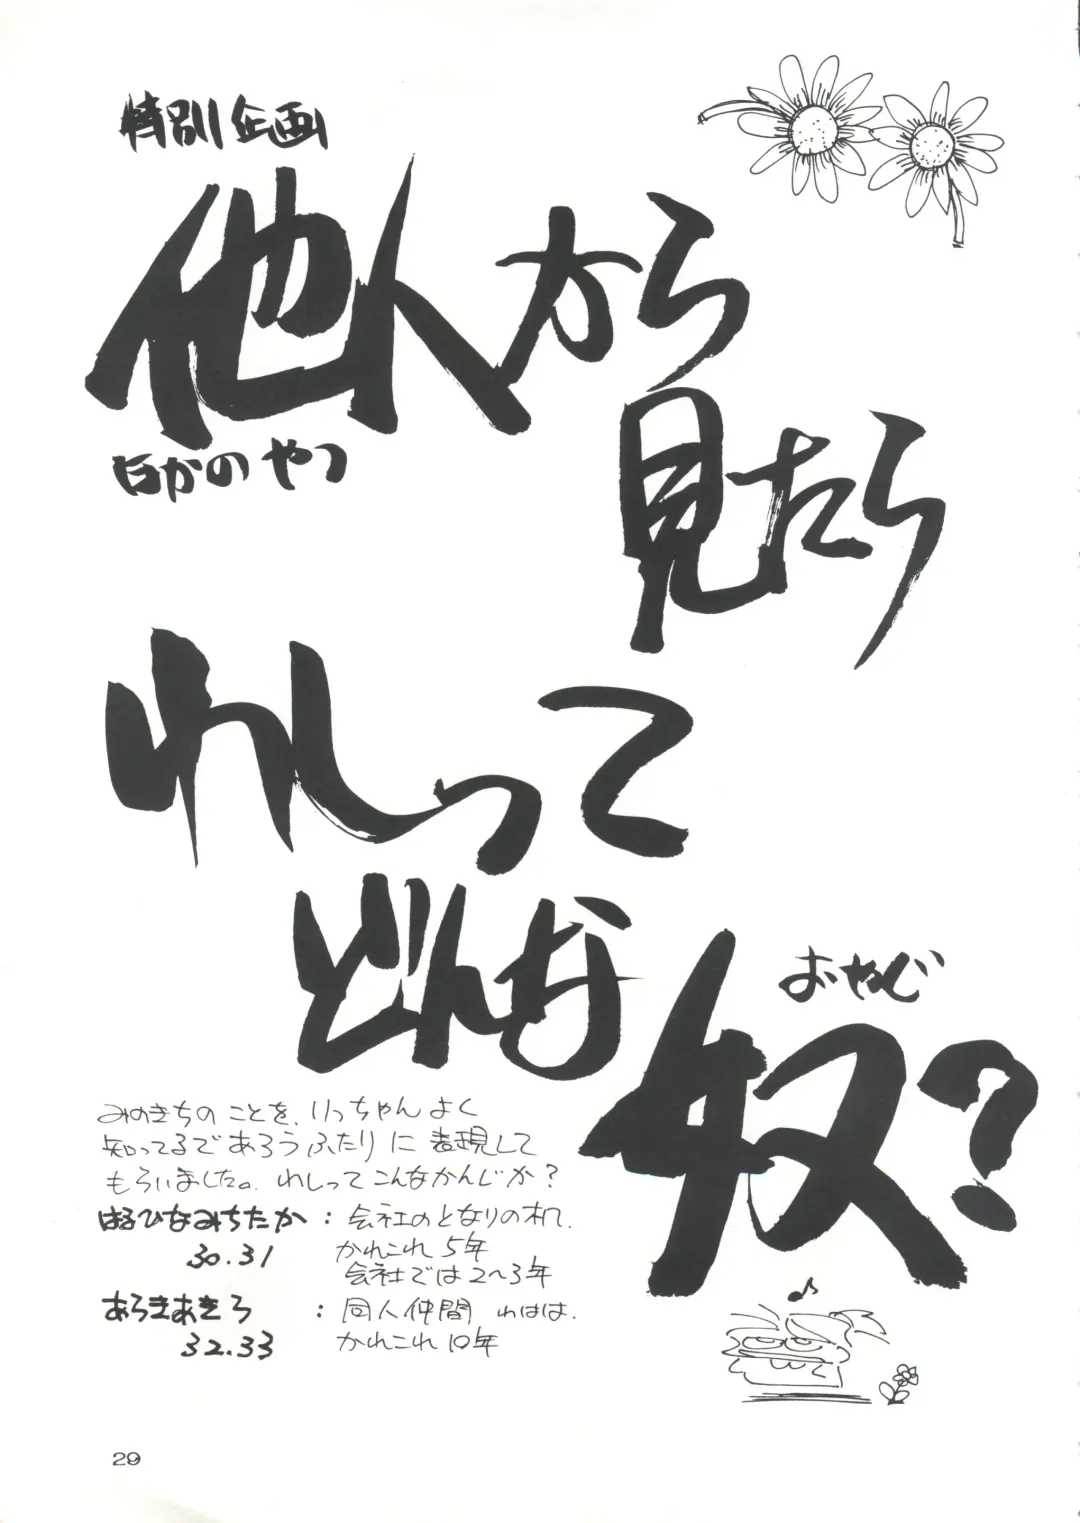 特別企画
他人から
ほかのやつ
見たら
わしって
どんな
おやじ
奴?
みのきちのことを、りっちゃんよく
知ってるであろうふたりに表現して
もらいました。わしってこんなかんじか?
はるひなみちたか : 会社のとなりの机。
30.31 かれこれ5年
会社では2〜3年
あらきあきら : 同人仲間 わはは.
32.33 かれこれ10年
♪
29